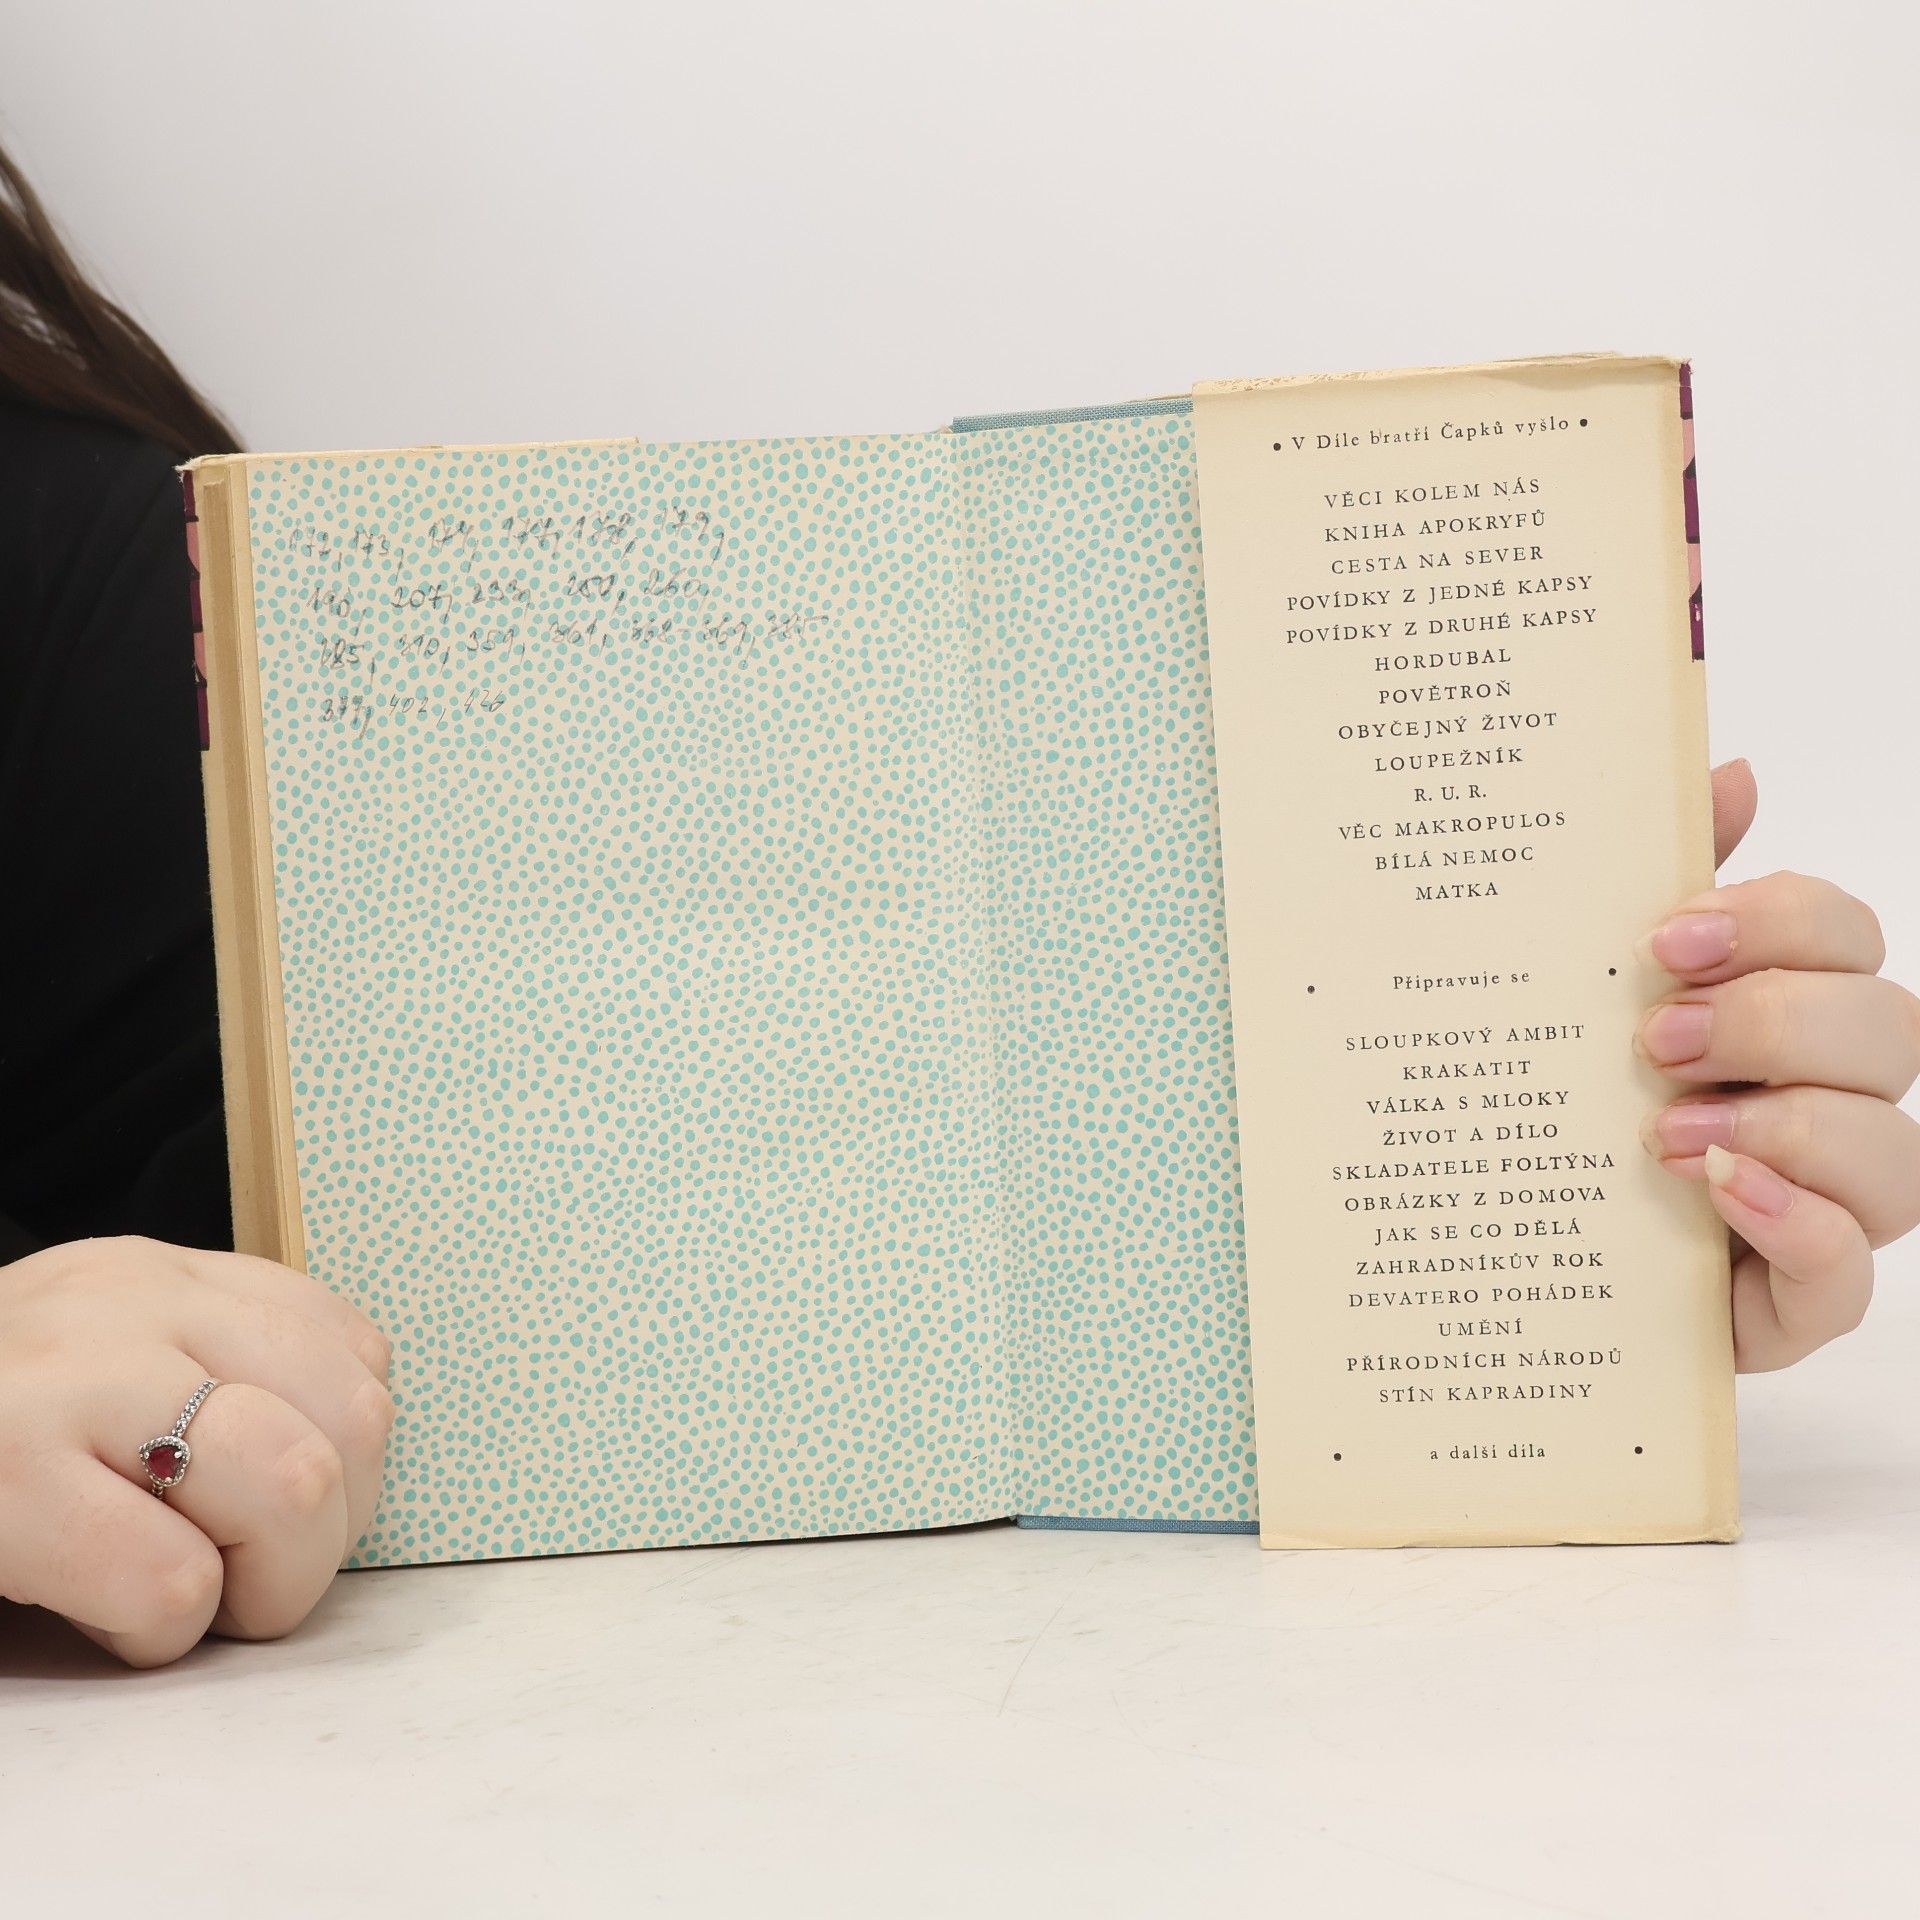 172, 173, 174, 177, 178, 179,
190, 207, 233, 250, 260,
310, 359, 361, 368-369, 375
377, 402, 426
• V Díle bratří Čapků vyšlo •
VĚCI KOLEM NÁS
KNIHA APOKRYFŮ
CESTA NA SEVER
POVÍDKY Z JEDNÉ KAPSY
POVÍDKY Z DRUHÉ KAPSY
HORDUBAL
POVĚTROŇ
OBYČEJNÝ ŽIVOT
LOUPEŽNÍK
R. U. R.
VĚC MAKROPULOS
BÍLÁ NEMOC
MATKA
• Připravuje se •
SLOUPKOVÝ AMBIT
KRAKATIT
VÁLKA S MLOKY
ŽIVOT A DÍLO
SKLADATELE FOLTÝNA
OBRÁZKY Z DOMOVA
JAK SE CO DĚLÁ
ZAHRADNÍKŮV ROK
DEVATERO POHÁDEK
UMĚNÍ
PŘÍRODNÍCH NÁRODŮ
STÍN KAPRADINY
• a další díla •